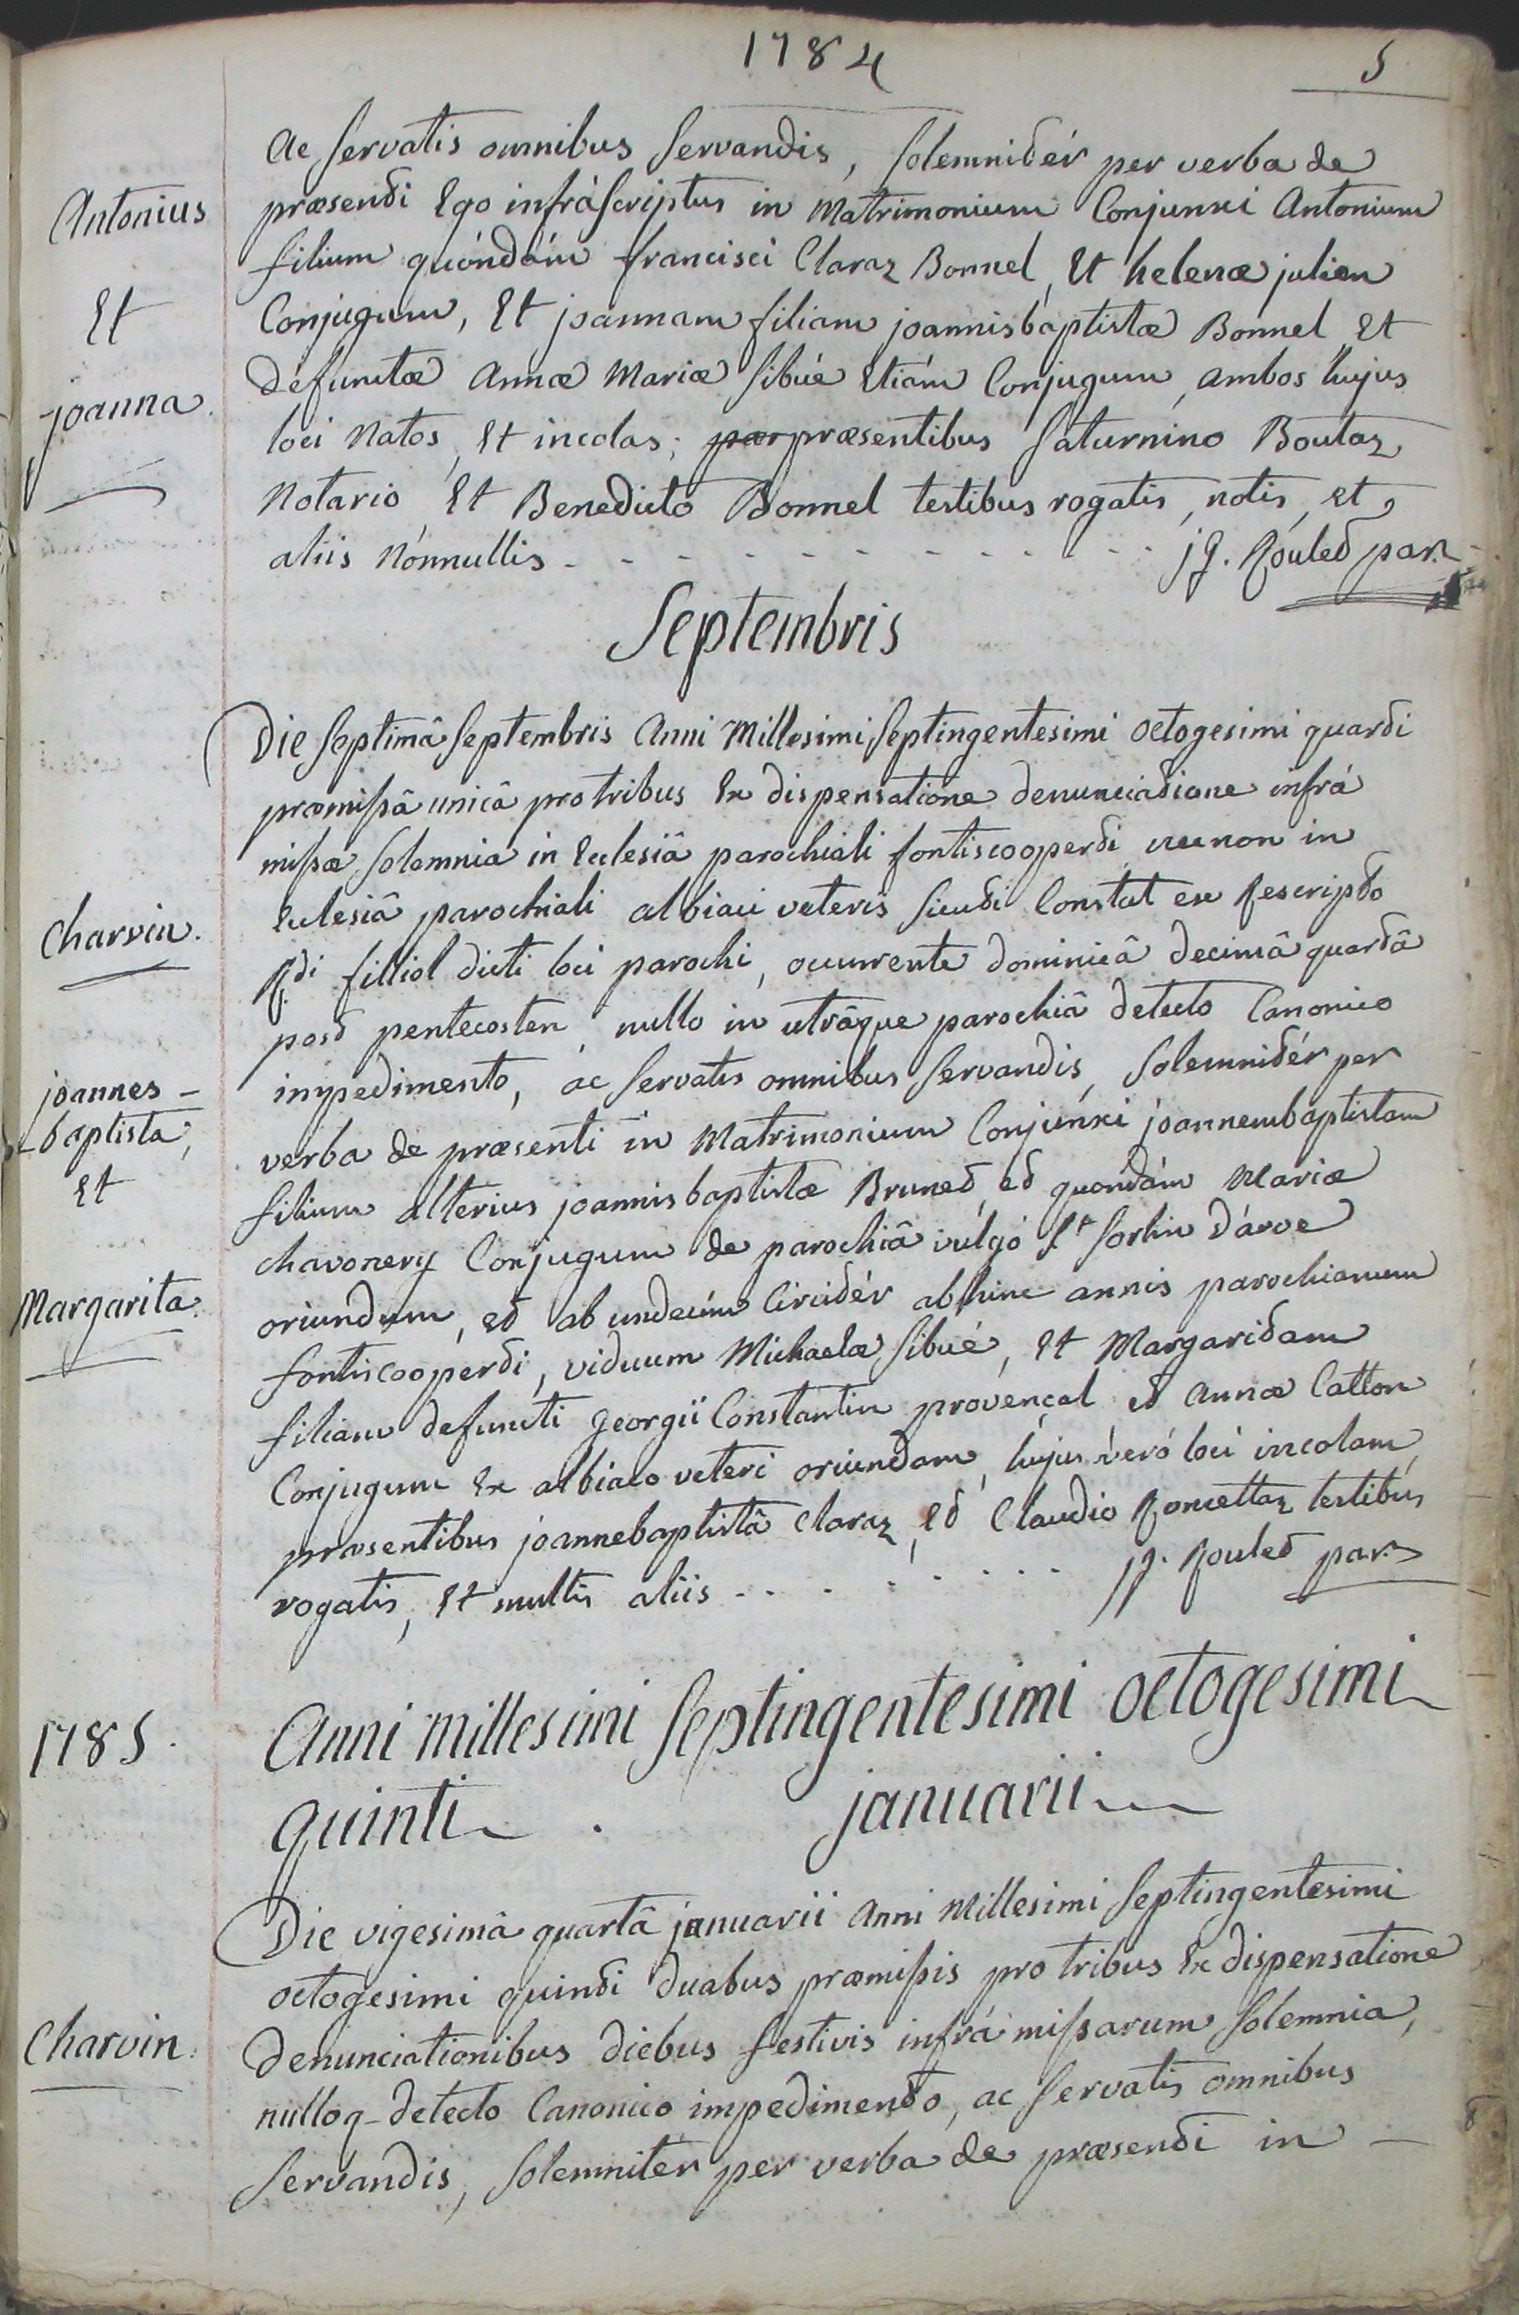 1784
5
ac servatis omnibus servandis, solemnitér per verba de
præsenti Ego infráscriptus in Matrimonium Conjunxi Antonium
filium quóndám francisci Claraz Bonnel, Et helenæ julien
Conjugum, Et joannam filiam joannisbaptistæ Bonnel Et
defunctæ Annæ Mariæ Sibüé Etiám Conjugum, ambos hujus
loci Natos, Et incolas; præsentibus Saturnino Boutaz
Notario Et Benedicto Bonnel testibus rogatis, notis, et
aliis Nónnullis - - - - - - - - - - jJ. Roulet par.
Antonius
Et
joanna.
Septembris
Die Septimâ Septembris Anni Millesimi Septingentesimi octogesimi quarti
præmissâ unicâ pro tribus Ex dispensatione denunciatione infrá
missæ solemnia in Ecclesiâ parochiali fontiscooperti necnon in
Ecclesiâ parochiali albiaci veteris sicuti Constat ex Rescripto
Rdi filliol dicti loci parochi, occurrente dominicâ decimâ quartâ
post pentecosten, nullo in utrâque parochiâ detecto Canonico
impedimento, ac servatis omnibus servandis, solemnitér per
verba de præsenti in Matrimonium Conjunxi joannembaptistam
filium alterius joannisbaptistæ Brunet, et quondám Mariæ
chavonery Conjugum de parochiâ vulgó St Sorlin d'arve
oriundum, et ab undecim Circitér abhinc annis parochianum
fontiscooperti, viduum Michaelæ Sibué, Et Margaritam
filiam defuncti Georgii Constantin provençal et Annæ Catton
Conjugum Ex albiaco veteri oriundam, hujus veró loci incolam,
præsentibus joannebaptistâ Claraz, Et Claudio Roncettaz testibus
rogatis, Et multis aliis - - - - - - - - jJ. Roulet par.
Charvin.
joannes -
- baptista;
Et
Margarita.
1785.
Anni millesimi Septingentesimi octogesimi
quinti . januarii
Die vigesimâ quartâ januarii Anni Millesimi Septingentesimi
octogesimi quinti duabus præmissis pro tribus Ex dispensatione
denunciationibus diebus festivis infrá missarum solemnia,
nulloq- detecto Canonico impedimento, ac servatis omnibus
servandis, solemniter per verba de præsenti in -
Charvin.